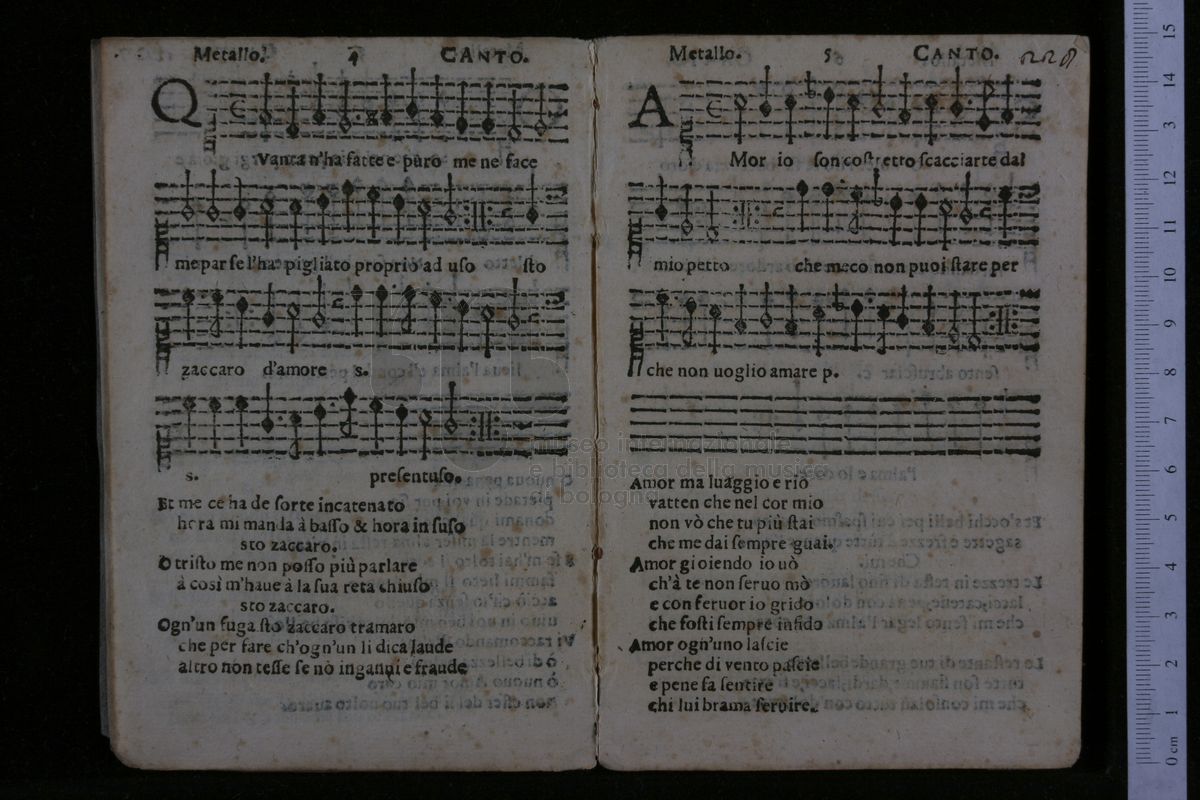 Metallo. 4 CANTO.
QVanta n'ha fatte e puro me ne face
me par se l'ha pigliato proprio ad uso sto
zaccaro d'amore s.
s. presentuso.
Et me ce ha de sorte incatenato
hora mi manda à basso & hora in suso
sto zaccaro.
O tristo me non posso più parlare
à così m'haue à la sua reta chiuso
sto zaccaro.
Ogn'un fuga sto zaccaro tramaro
che per fare ch'ogn'un li dica laude
altro non tesse se nò inganni e fraude
Metallo. 5 CANTO. 228
AMor io son costretto scacciarte dal
mio petto che meco non puoi stare per
che non uoglio amare p.
Amor maluaggio e rio
vatten che nel cor mio
non vò che tu più stai
che me dai sempre guai.
Amor gioiendo io uò
ch'à te non seruo mò
e con feruor io grido
che fosti sempre infido
Amor ogn'uno lascie
perche di vento pascie
e pene fa sentire
chi lui brama seruire.
museo internazionale
e biblioteca della musica
bologna
15
14
13
12
11
10
9
8
7
6
5
4
3
2
1
0 cm